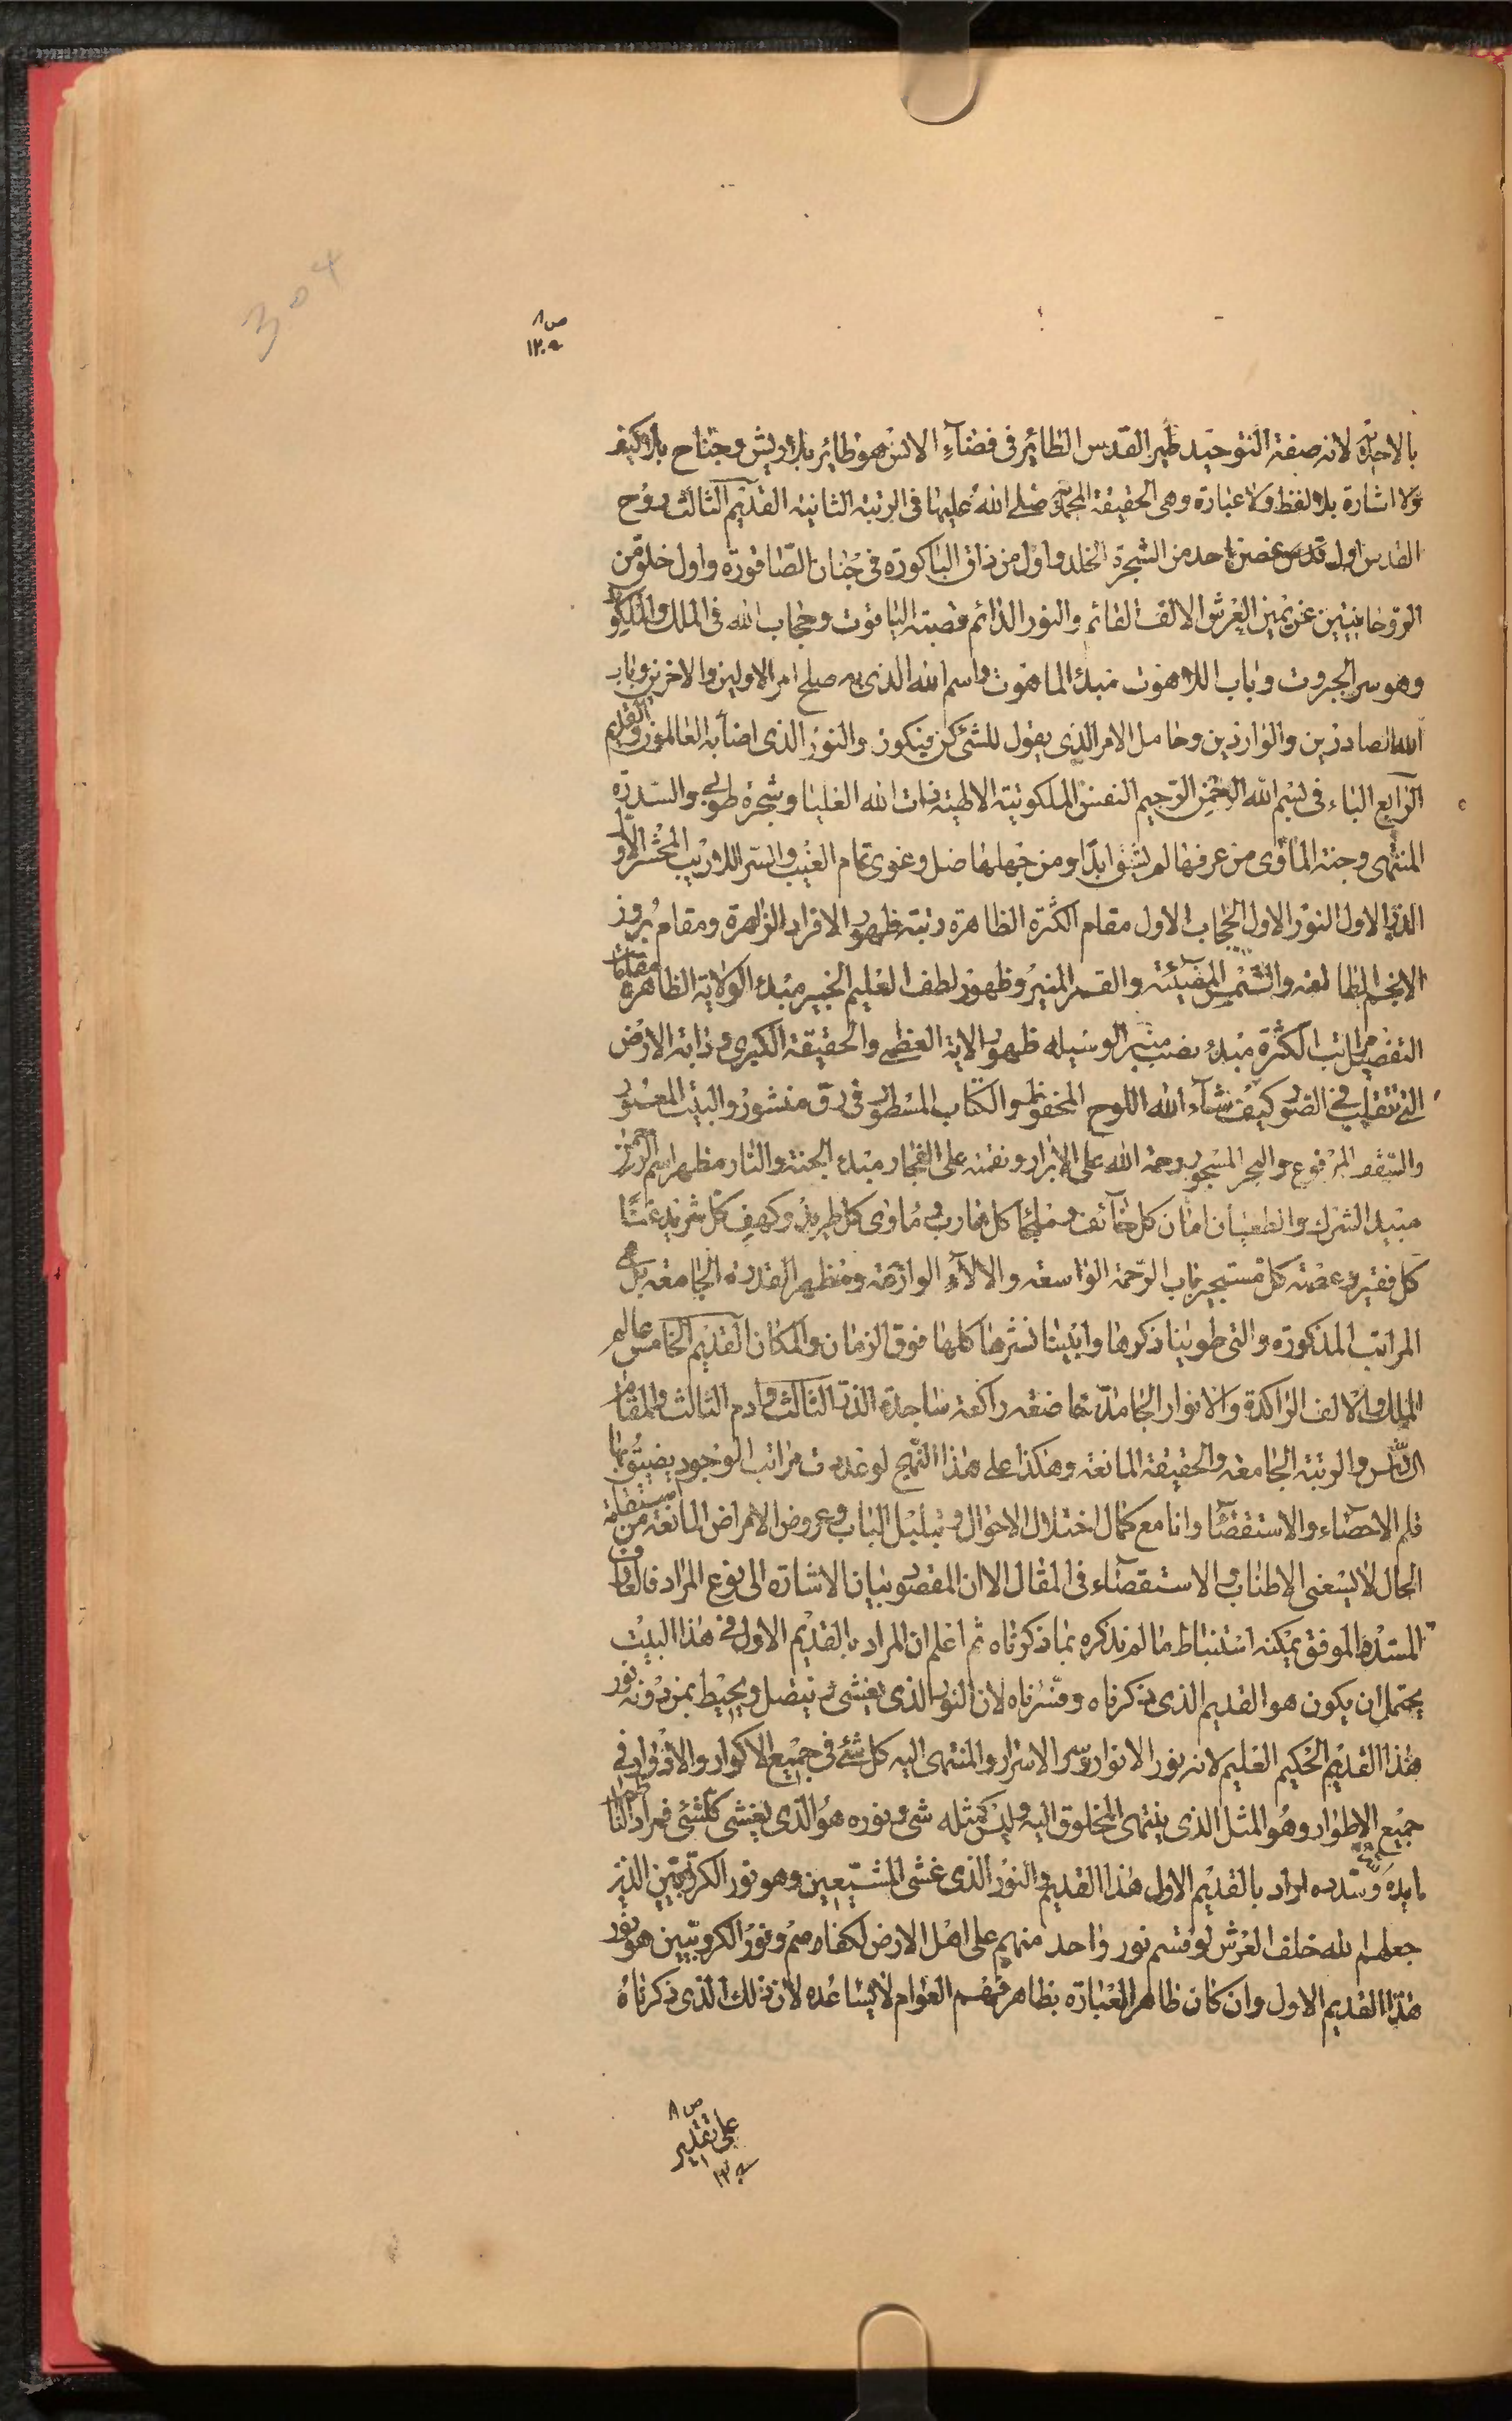 304
ص ٨
بالاحدية لانه صفة التوحيد طير القدس الطائر فى فضآء الانس وهو طائر بلا ريش وجناح بلا كيف
ولا اشارة بلا لفظ ولا عبارة وهى الحقيقة المحمدية صلى الله عليها فى الرتبة الثانية القديم الثالث روح
القدس اول غصن اخذ من الشجرة الخلد واول من ذاق الباكورة فى جنان الصاقورة واول خلق من
الروحانيين عن يمين العرش الالف القائم والنور الدائم قصبة الياقوت وحجاب الله فى الملك والملكوت
وهو سر الجبروت وباب اللاهوت مبدء الماهوت واسم الله الذى به صلح امر الاولين والاخرين وباب
الله الصادرين والواردين وحامل الامر الذى يقول للشئ كن فيكون والنور الذى اضآء به العالمون القديم
الرابع الباء فى بسم الله الرحمن الرحيم النفس الملكوتية الالهية ذات الله العليا وشجرة طوبى والسدرة
المنتهى وجنة الماوى من عرفها لم يشق ابدا ومن جهلها ضل وغوى تمام الغيب والسر اللاريب المحشر الاول
الذر الاول النور الاول الحجاب الاول مقام الكثرة الظاهرة رتبة ظهور الافراد الزاهرة ومقام بروز
الانجم الطالعة والشمس المضيئة والقمر المنير وظهور لطف العليم الخبير مبدء الولاية الظاهرة مقامات
التفصيل مراتب الكثرة مبدء نصب منبر الوسيله ظهور الاية العظمى والحقيقة الكبرى ودابة الارض
التى تتقلب فى الصور كيف شآء الله اللوح المحفوظ والكتاب المسطور فى رق منشور والبيت المعمور
والسقف المرفوع والبحر المسجور رحمة الله على الابرار ونقمته على الفجار مبدء الجنة والنار مظهر اسم الرحمن
مبيد الشرك والطغيان امان كل خآئف وملجأ كل هارب وماوى كل طريد وكهف كل شريد غنآء
كل فقير وعصمة كل مستجير باب الرحمة الواسعة والالآء الوازعة ومظهر القدرة الجامعة بل هى
المراتب المذكورة والتى طوينا ذكرها وابينا نشرها كلها فوق الزمان والمكان القديم الخامس عالم
الملك والالف الراكدة والانوار الجامدة خاضعة راكعة ساجدة الذر الثالث وادم الثالث والمقام
السادس والرتبة الجامعة والحقيقة المانعة وهكذا على هذا النهج لو عددت مراتب الوجود يضيق بها
قلم الاحصاء والاستقصآء وانا مع كمال اختلال الاحوال وتبلبل البال وعروض الامراض المانعة من استقامة
الحال لا يسعنى الاطناب والاستقصآء فى المقال الا ان المقصود بيان الاشارة الى نوع المراد فالعارف
المسدد الموفق يمكنه استنباط ما لم نذكره بما ذكرناه ثم اعلم ان المراد بالقديم الاول فى هذا البيت
يحتمل ان يكون هو القديم الذى ذكرناه وفسرناه لان النور الذى يغشى ويتصل ويحيط بمن دونه نور
هذا القديم الحكيم العليم لانه نور الانوار وسر الاسرار والمنتهى اليه كل شئ فى جميع الاكوار والادوار فى
جميع الاطوار وهو المثل الذى ينتهى المخلوق اليه وليس كمثله شئ ونوره هو الذى يغشى كلشئ فمراد الناظم
ايده الله وسدده اراد بالقديم الاول هذا القديم والنور الذى غشى المشيعين وهو نور الكروبيين الذين
جعلهم الله خلف العرش لو قسم نور واحد منهم على اهل الارض لكفاهم ونور الكروبيين هو نور
هذا القديم الاول وان كان ظاهر العبارة بظاهر فهم العوام لا يساعده لان ذلك الذى ذكرناه
ص ٨